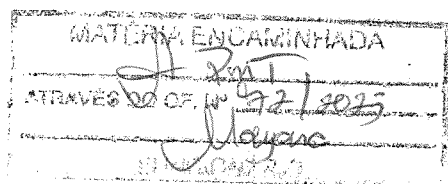 MATÉRIA ENCAMINHADA
À PMT
ATRAVÉS DO OF. Nº 72/2023
Mayana